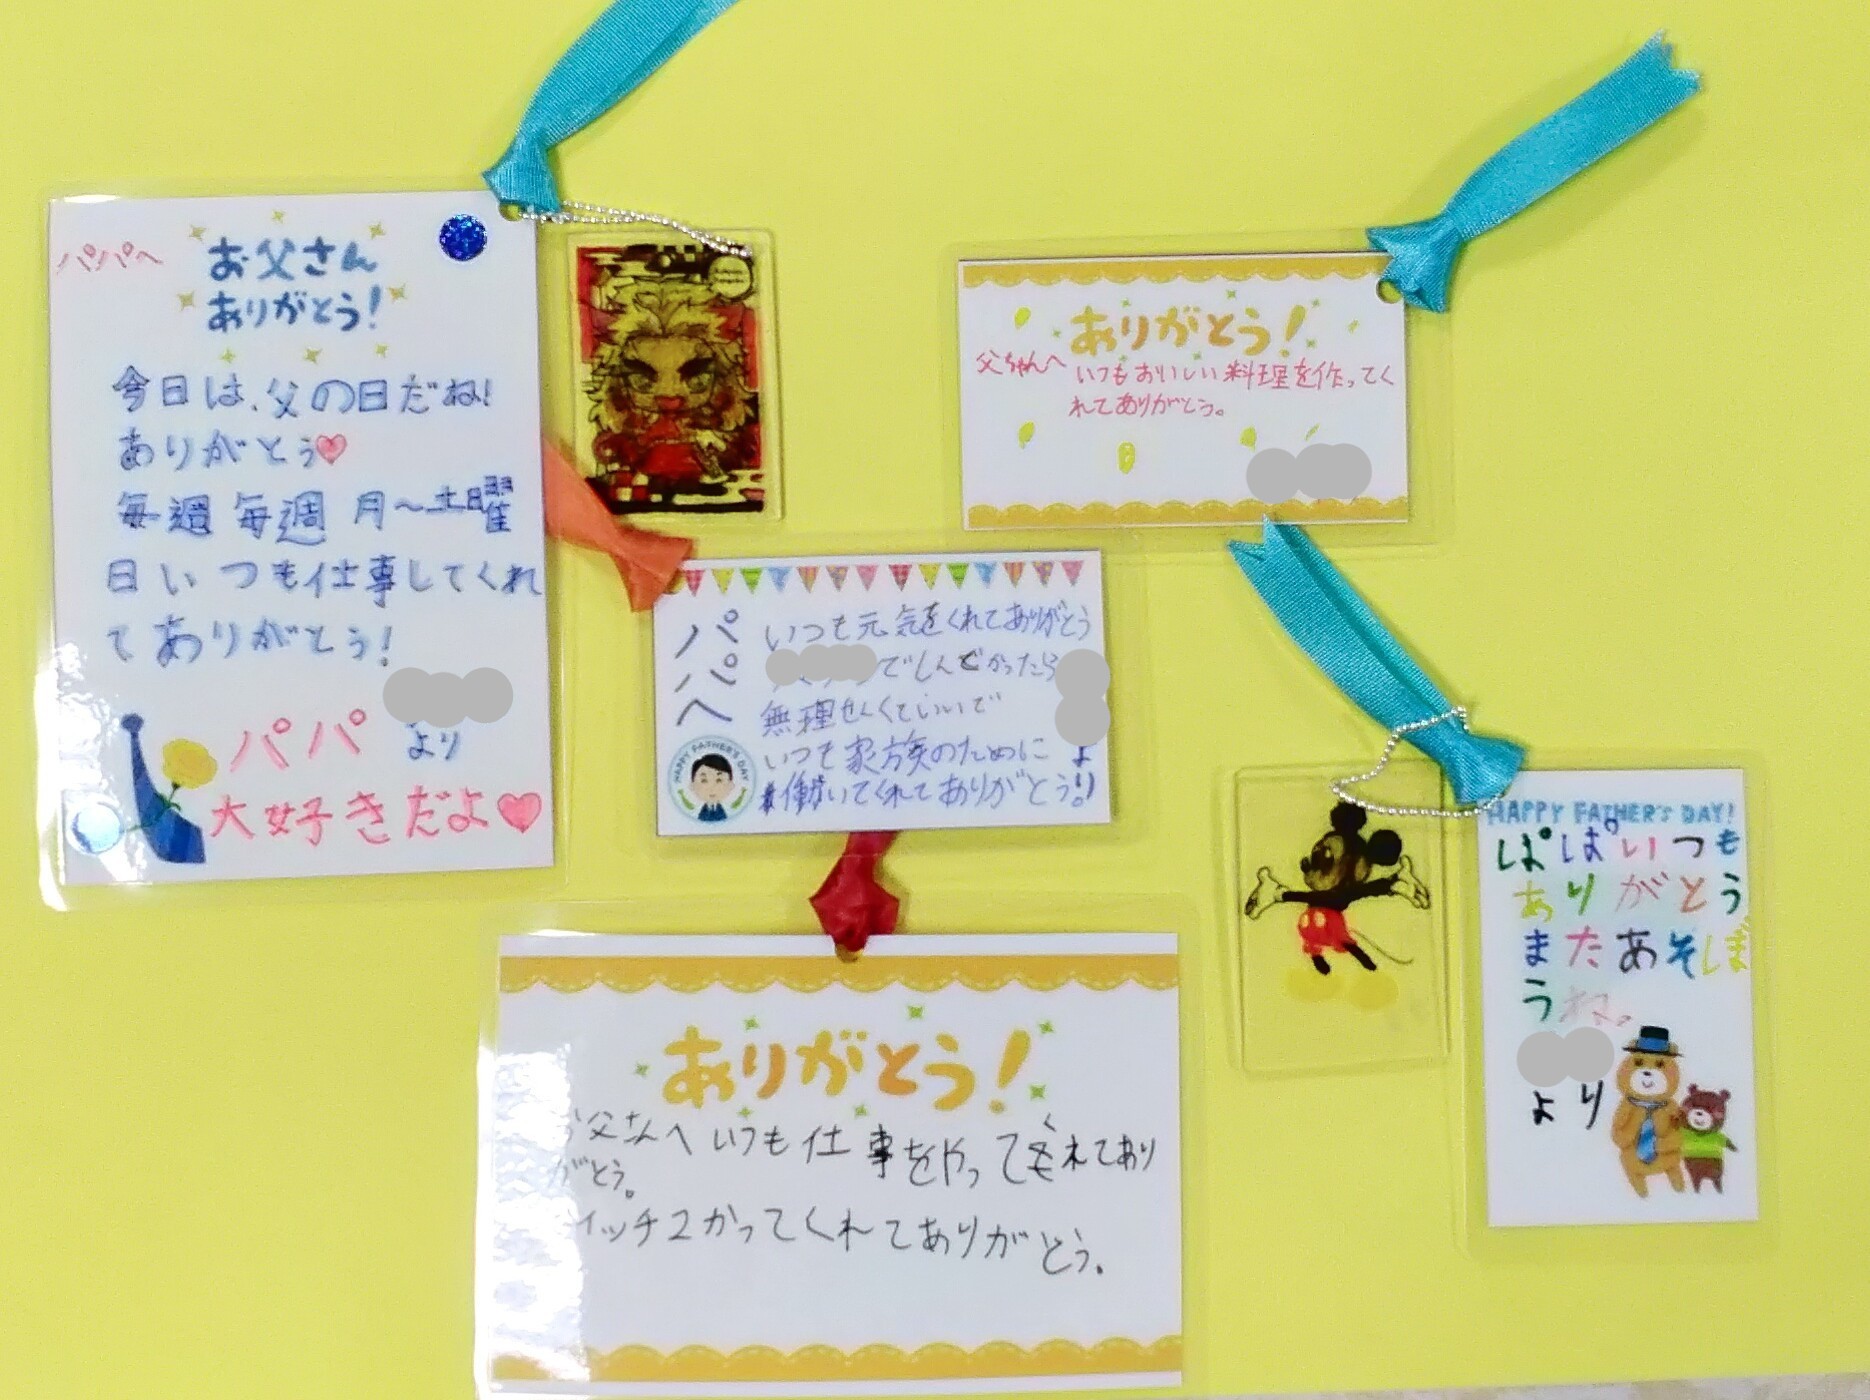 パパへ
お父さん
ありがとう!
今日は、父の日だね!
ありがとう
毎週毎週 月〜土曜
日いつも仕事してくれ
てありがとう!
より
パパ
大好きだよ
ありがとう!
父ちゃんへ
いつもおいしい料理を作ってく
れてありがとう。
パパへ
いつも元気をくれてありがとう
でしんどかったら
無理せんくていいで
いつも家族のために
働いてくれてありがとう!
より
HAPPY FATHER'S DAY
HAPPY FATHER'S DAY!
ぱぱいつも
ありがとう
またあそぼ
うね。
より
ありがとう!
父さんへいつも仕事をやってくれてあり
がとう。
イッチ2かってくれてありがとう。